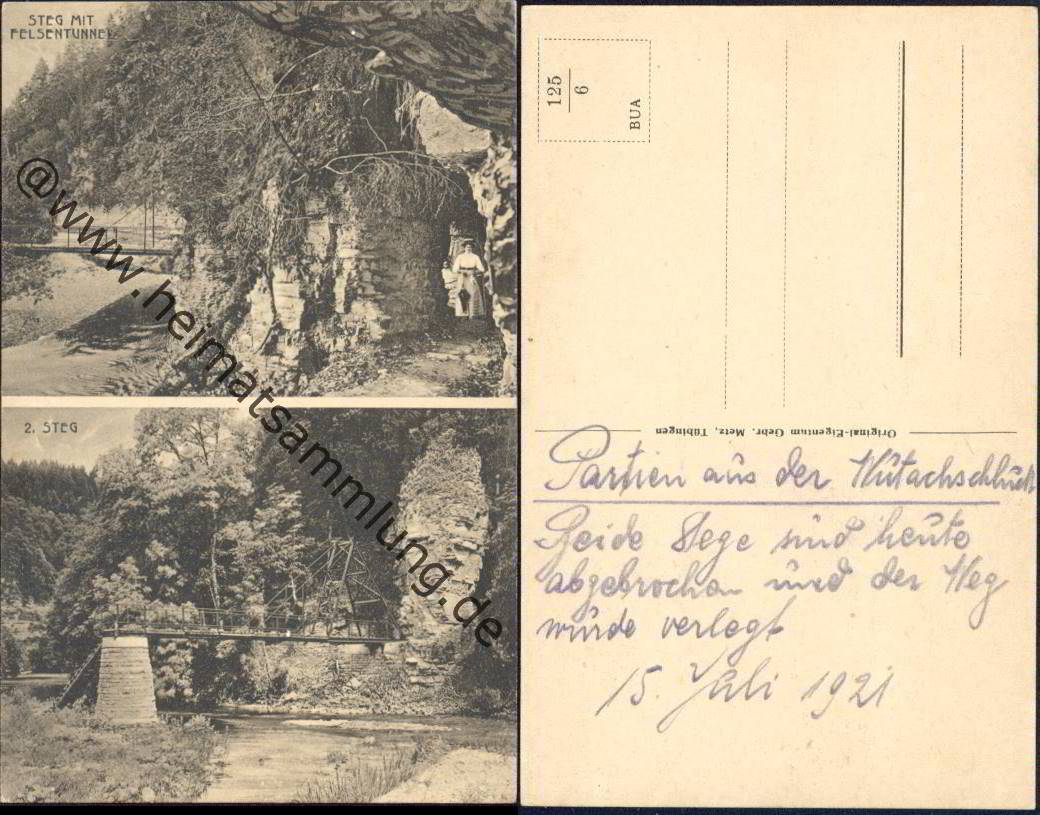 STEG MIT
FELSENTUNNEL
2. STEG
@www.heimatsammlung.de
125
6
BUA
Original-Eigentum Gebr. Metz, Tübingen
Partien aus der Wutachschlucht
Beide Stege sind heute
abgebrochen und der Weg
wurde verlegt
15. Juli 1921